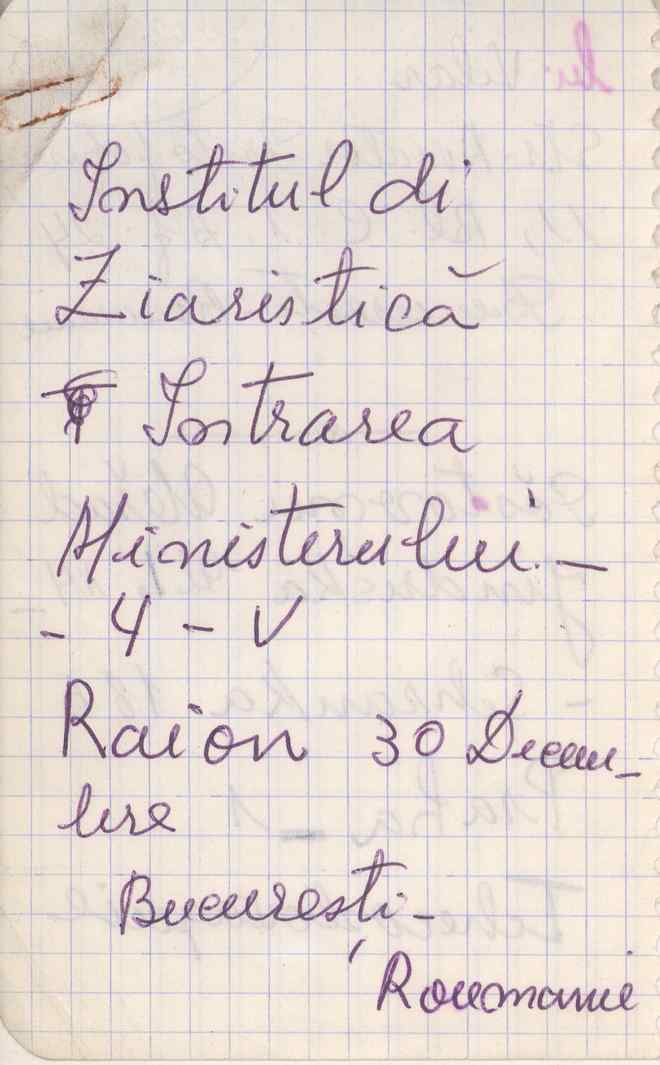 Institul di
Ziaristică
Intrarea
Ministerului -
- 4 - V
Raion 30 Decem-
bre
Bucuresti -
Roumanie